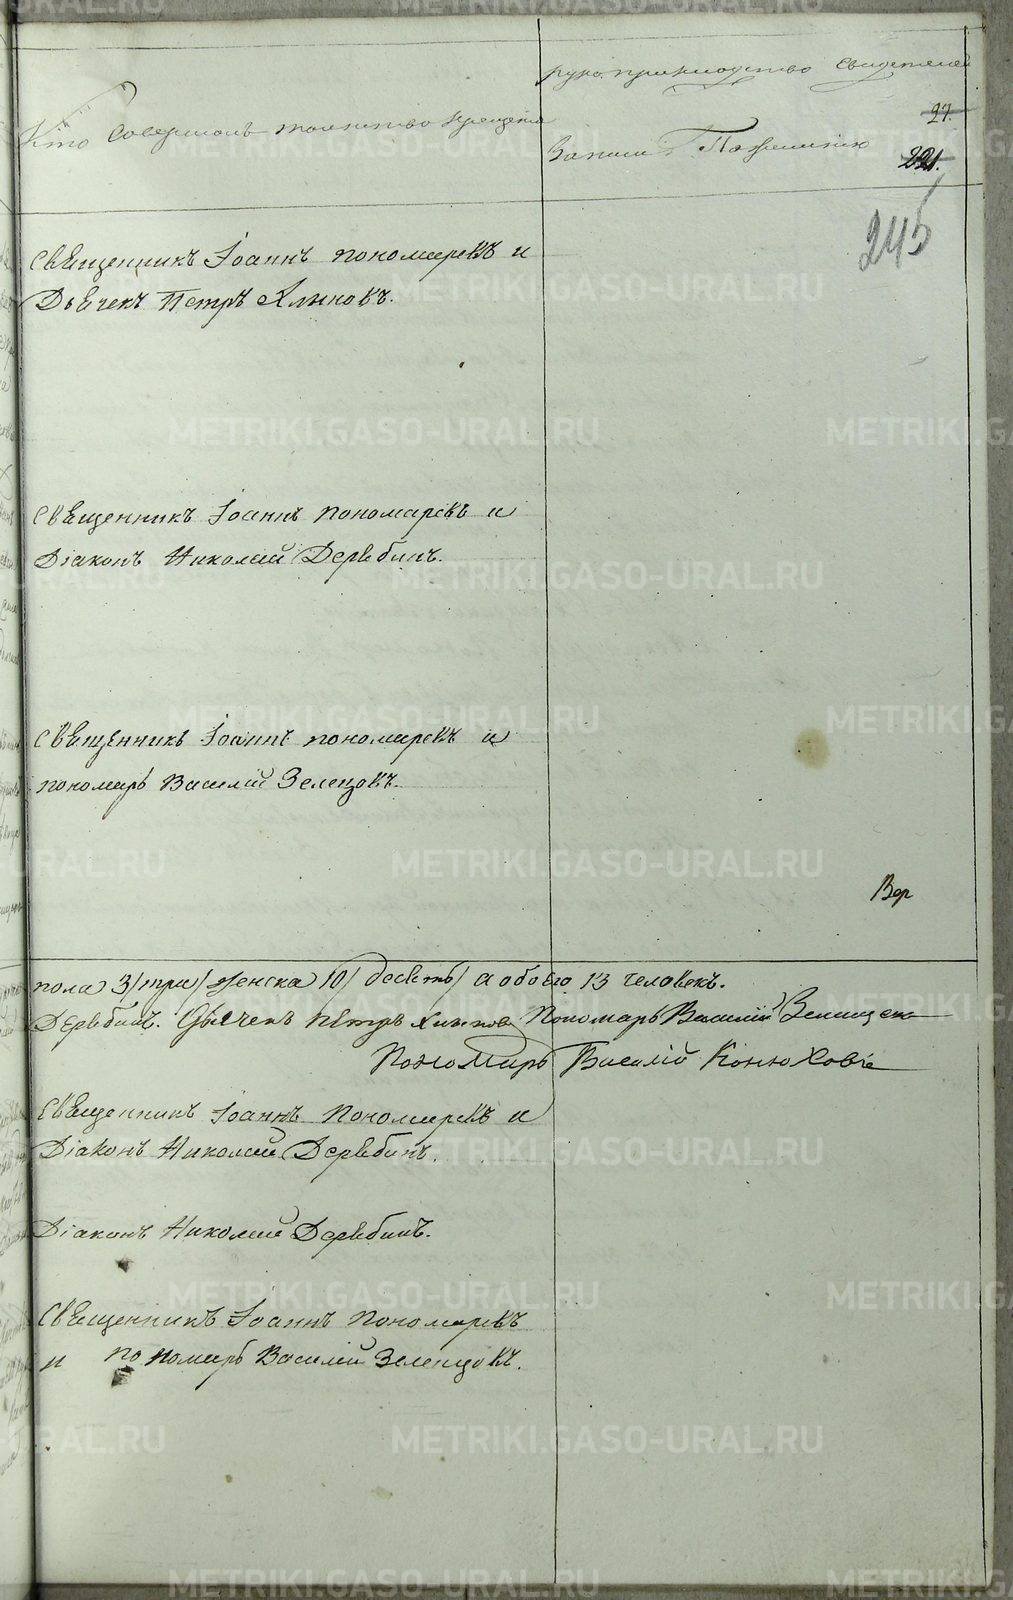 Кто Совершалъ таинство крещенія
рукоприкладство свидетелей
записи По желанію
27.
221.
245
Священникъ Іоаннъ Пономаревъ и
Дьячекъ Петръ Хлыновъ.
Священникъ Іоаннъ Пономаревъ и
Діаконъ Николай Дерябинъ.
Священникъ Іоаннъ Пономаревъ и
пономарь Василій Зеленцовъ.
Вер
пола 3/три/ женска 10/ десять/ а обоего 13 человекъ.
Дерябинъ. Дьячекъ Петръ Хлыновъ Пономарь Василій
Пономарь Василій Конюховъ
Священникъ Іоаннъ Пономаревъ и
Діаконъ Николай Дерябинъ.
Діаконъ Николай Дерябинъ.
Священникъ Іоаннъ Пономаревъ
и пономарь Василій Зеленцовъ.
METRIKI.GASO-URAL.RU